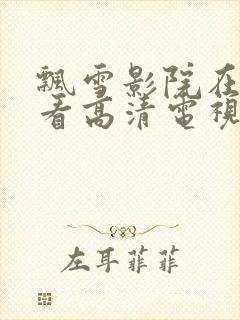 飄雪影院在
看高清電視
左耳菲菲